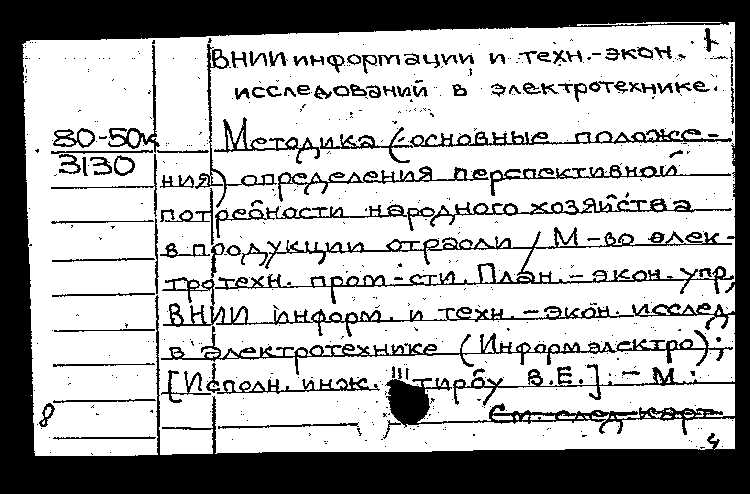 1
ВНИИ информации и техн.-экон.
исследований в электротехнике.
80-50к
3130
Методика (основные положе-
ния) определения перспективной
потребности народного хозяйства
в продукции отрасли / М-во элек-
тротехн. пром-сти. План.-экон. упр,
ВНИИ информ. и техн.-экон. исслед.
в электротехнике (Информэлектро);
[Исполн. инж. Штирбу В.Е.]. - М:
См. след. карт.
8
4